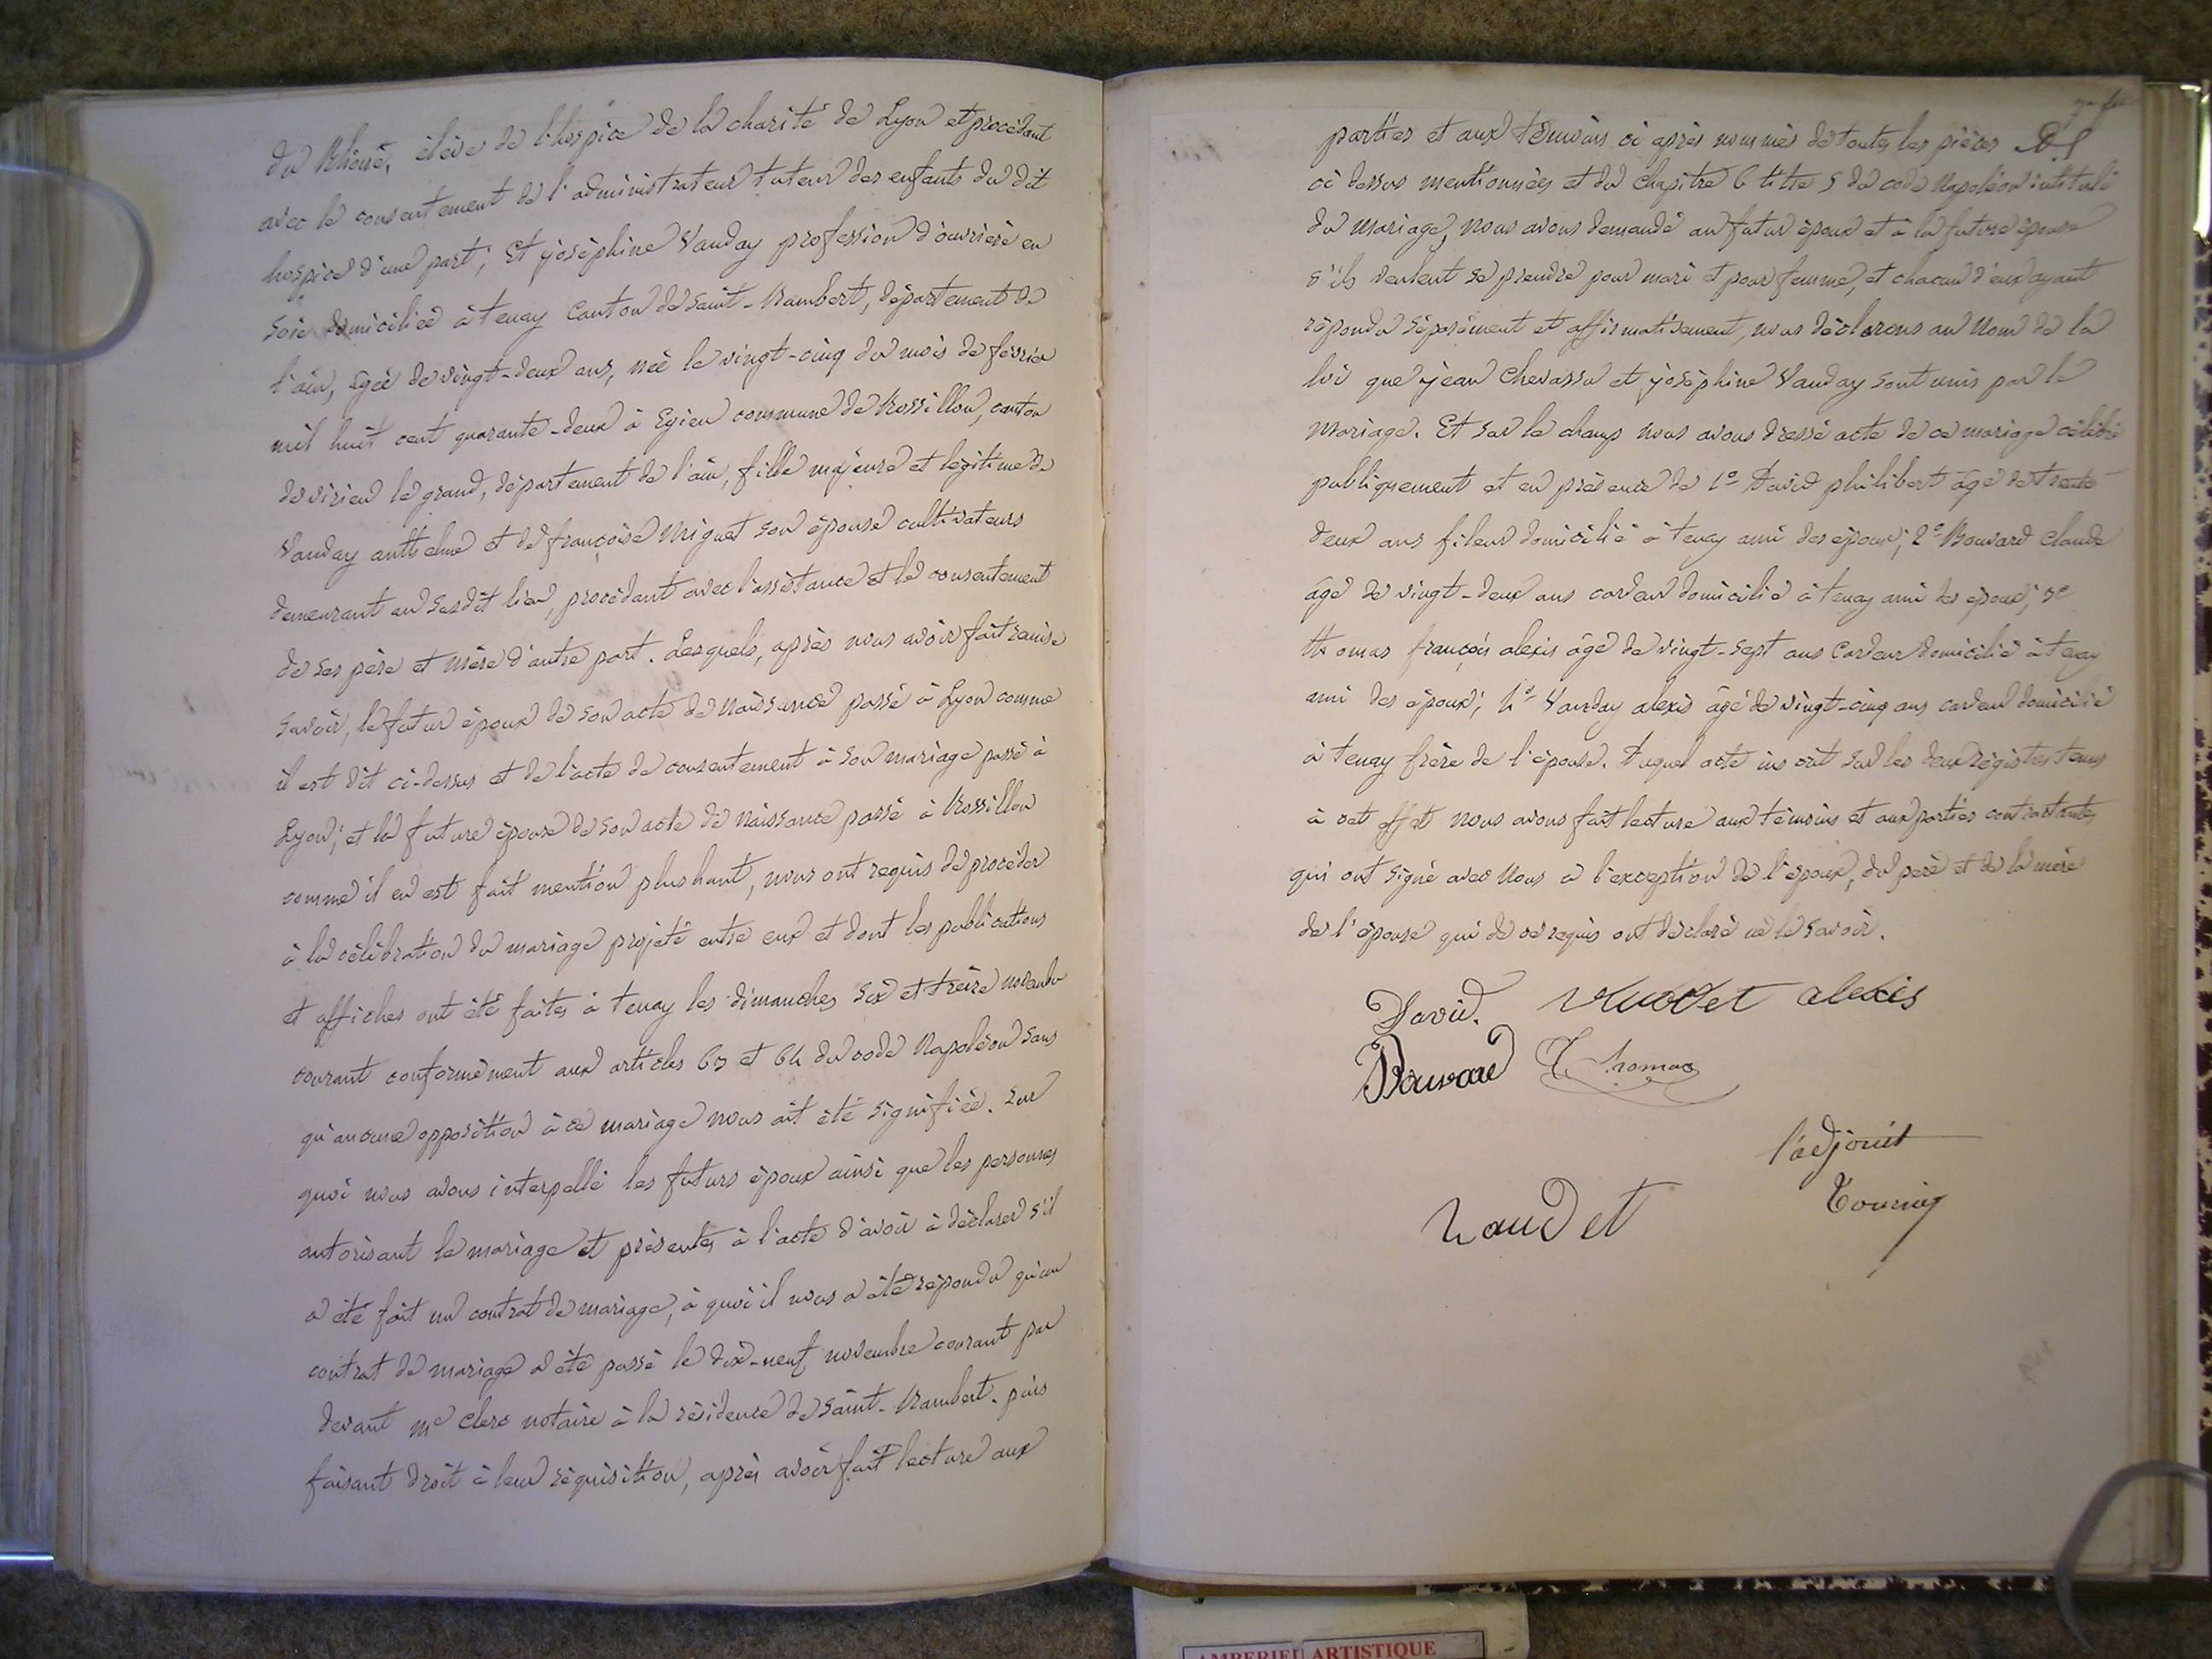 du Rhône, élève de l'hospice de la charité de Lyon et procédant
avec le consentement de l'administrateur tuteur des enfants du dit
hospice d'une part; Et joséphine Vauday profession d'ouvrière en
soie domiciliée à tenay Canton de saint-Rambert, département de
l'ain, âgée de vingt-deux ans, née le vingt-cinq du mois de février
mil huit cent quarante-deux à Egieu commune de Rossillon, canton
de virieu le grand, département de l'ain, fille majeure et légitime de
Vauday anthelme et de françoise Miguet son épouse cultivateurs
demeurant au susdit lieu, procédant avec l'assistance et le consentement
de ses père et mère d'autre part. Lesquels, après nous avoir fait remise
savoir, le futur époux de son acte de naissance passé à Lyon comme
il est dit ci-dessus et de l'acte de consentement à son mariage passé à
Lyon; et la future épouse de son acte de naissance passé à Rossillon
comme il en est fait mention plus haut, nous ont requis de procéder
à la célébration du mariage projeté entre eux et dont les publications
et affiches ont été faites à tenay les dimanches six et treize novembre
courant conformément aux articles 63 et 64 du code Napoléon sans
qu'aucune opposition à ce mariage nous ait été signifiée. Sur
quoi nous avons interpellé les futurs époux ainsi que les personnes
autorisant le mariage et présentes à l'acte d'avoir à déclarer s'il
a été fait un contrat de mariage, à quoi il nous a été répondu qu'un
contrat de mariage a été passé le dix-neuf novembre courant par
devant Me Clerc notaire à la résidence de saint-Rambert. puis
faisant droit à leur réquisition, après avoir fait lecture aux
parties et aux témoins ci après nommés de toutes les pièces
ci dessus mentionnées et du chapitre 6 titre 5 du code Napoléon intitulé
du Mariage, nous avons demandé au futur époux et à la future épouse
s'ils veulent se prendre pour mari et pour femme, et chacun d'eux ayant
répondu séparément et affirmativement, nous déclarons au Nom de la
loi que jean Chevassu et joséphine Vauday sont unis par le
mariage. Et sur le champ nous avons dressé acte de ce mariage célébré
publiquement et en présence de 1° David philibert âgé de trente
deux ans fileur domicilié à tenay ami des époux; 2° Bouvard Claude
âgé de vingt-deux ans cardeur domicilié à tenay ami des époux; 3°
thomas françois alexis âgé de vingt-sept ans Cardeur domicilié à tenay
ami des époux; 4° Vauday alexis âgé de vingt-cinq ans cardeur domicilié
à tenay frère de l'épouse. Duquel acte inscrit sur les deux régistres tenus
à cet effet nous avons fait lecture aux témoins et aux parties contractantes
qui ont signé avec Nous à l'exception de l'époux, du père et de la mère
de l'épouse qui de ce requis ont déclaré ne le savoir.
David. alexis
Bouvard Thomas
l'adjoint
Vaudet
AMBERIEU ARTISTIQUE